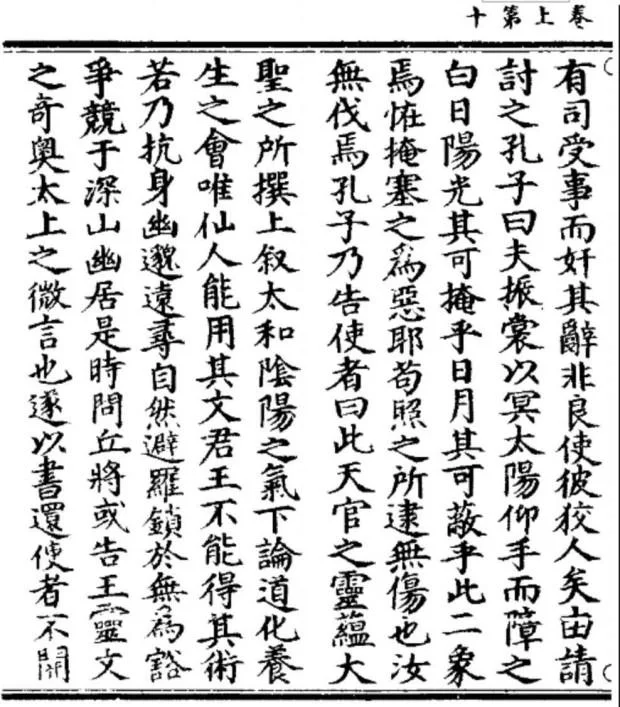 卷上第十
有司受事而奸其辭非良使彼狡人矣由請
討之孔子曰夫振裳以冥太陽仰手而障之
白日陽光其可掩乎日月其可蔽乎此二象
焉恠掩塞之爲惡耶苟照之所逮無傷也汝
無伐焉孔子乃告使者曰此天官之靈蘊大
聖之所撰上叙太和陰陽之氣下論道化養
生之會唯仙人能用其文君王不能得其術
若乃抗身幽邈遠尋自然避羅鎖於無爲豁
爭競于深山幽居是時問丘將或告王靈文
之奇奥太上之微言也遂以書還使者不開